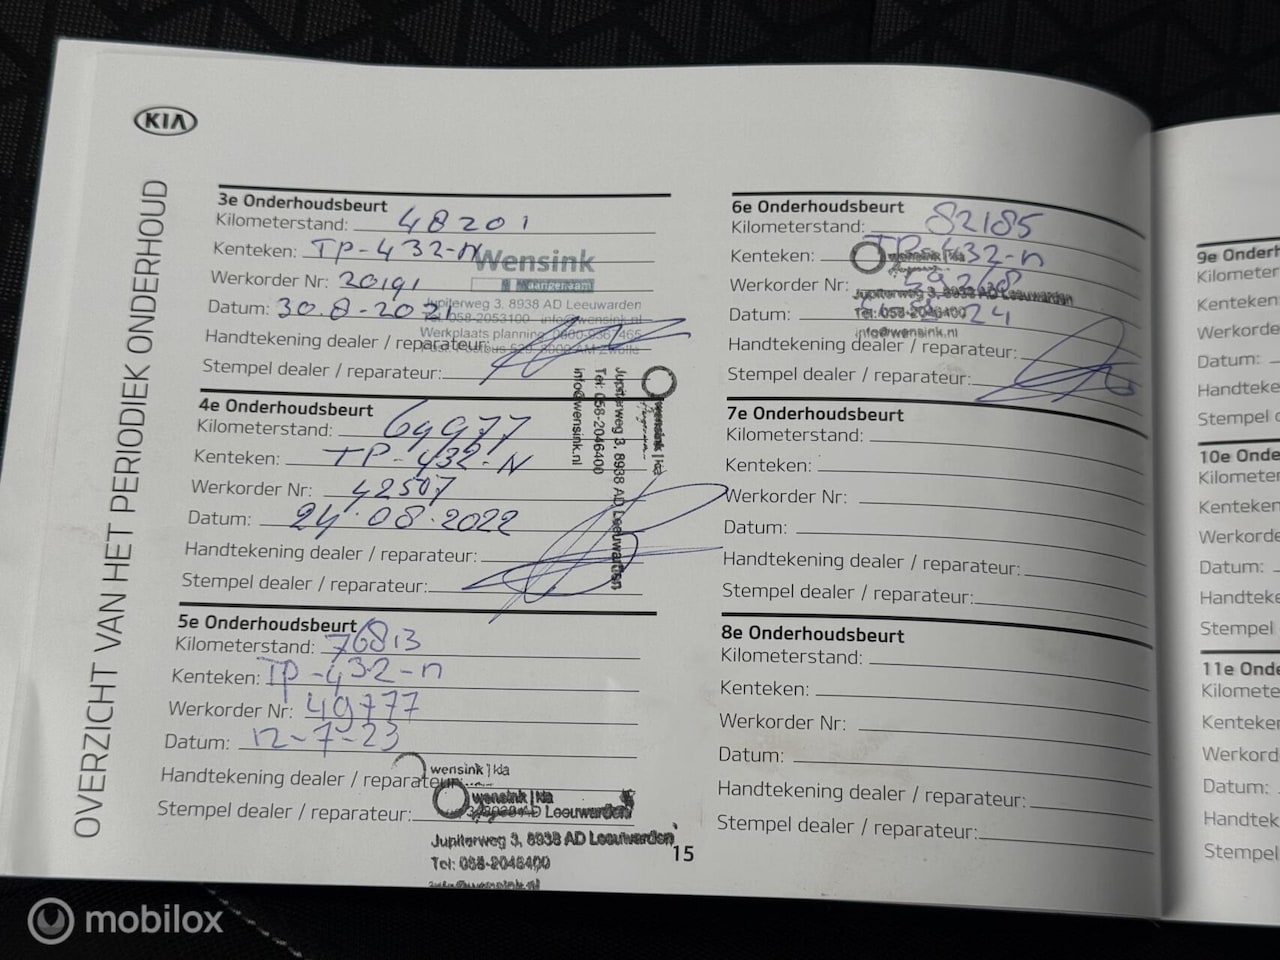 KIA
OVERZICHT VAN HET PERIODIEK ONDERHOUD
3e Onderhoudsbeurt
Kilometerstand: 48201
Kenteken: TP-432-N
Werkorder Nr: 20191
Datum: 30.8-2021
Handtekening dealer / reparateur:
Stempel dealer / reparateur:
Wensink
aangenaam
Jupiterweg 3, 8938 AD Leeuwarden
Tel: 058-2053100 info@wensink.nl
Werkplaats planning: 0800-9367465
wensink | kia
Jupiterweg 3, 8938 AD Leeuwarden
Tel: 058-2046400
info@wensink.nl
4e Onderhoudsbeurt
Kilometerstand: 69977
Kenteken: TP-432-N
Werkorder Nr: 42507
Datum: 24.08.2022
Handtekening dealer / reparateur:
Stempel dealer / reparateur:
5e Onderhoudsbeurt
Kilometerstand: 76813
Kenteken: TP-432-n
Werkorder Nr: 49777
Datum: 12-7-23
Handtekening dealer / reparateur:
Stempel dealer / reparateur:
wensink | kia
wensink | kia
Jupiterweg 3, 8938 AD Leeuwarden
Tel: 058-2046400
15
6e Onderhoudsbeurt
Kilometerstand: 82185
Kenteken: TP-432-n
Werkorder Nr:
Datum: 24
Handtekening dealer / reparateur:
Stempel dealer / reparateur:
wensink | kia
Jupiterweg 3, 8938 AD Leeuwarden
Tel: 058-2046400
info@wensink.nl
7e Onderhoudsbeurt
Kilometerstand:
Kenteken:
Werkorder Nr:
Datum:
Handtekening dealer / reparateur:
Stempel dealer / reparateur:
8e Onderhoudsbeurt
Kilometerstand:
Kenteken:
Werkorder Nr:
Datum:
Handtekening dealer / reparateur:
Stempel dealer / reparateur:
9e Onderh
Kilometer
Kenteken
Werkord
Datum:
Handteke
Stempel d
10e Onde
Kilometer
Kenteken
Werkorde
Datum:
Handteke
Stempel
11e Onde
Kilomete
Kenteke
Werkord
Datum:
Handtek
Stempel
mobilox